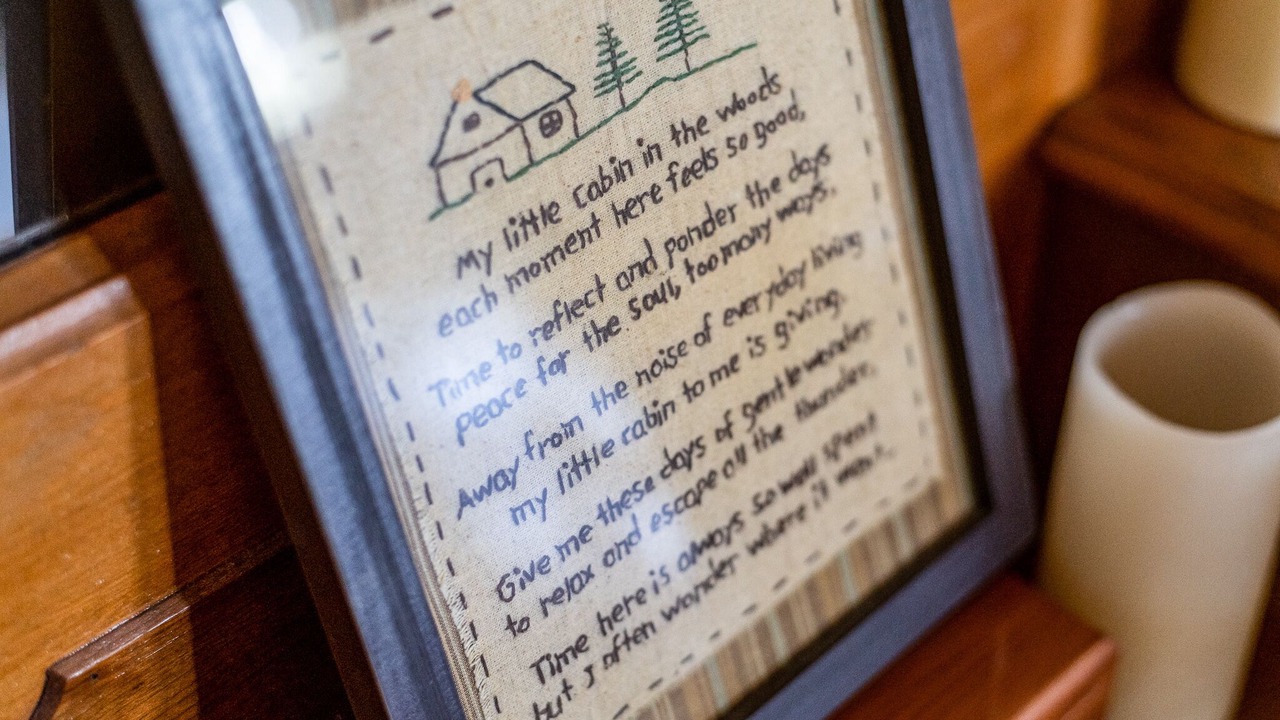 My little cabin in the woods
each moment here feels so good,
Time to reflect and ponder the days
peace for the soul, too many ways.
Away from the noise of everyday living
my little cabin to me is giving.
Give me these days of gentle wonder
to relax and escape all the thunder.
Time here is always so well spent
but I often wonder where it went.